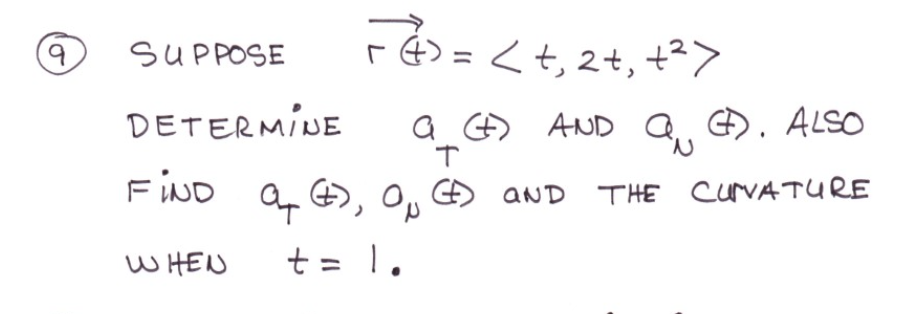 ⑨ SUPPOSE r⃗(t) = <t, 2t, t²>
DETERMINE a_T(t) AND a_N(t). ALSO
FIND a_T(t), a_N(t) AND THE CURVATURE
WHEN t = 1.